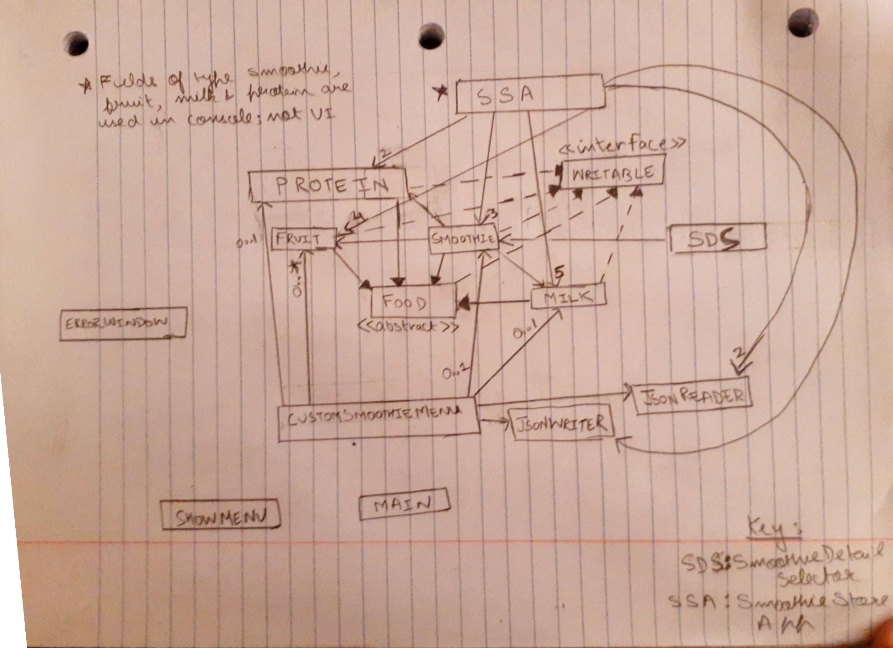 * Fields of type smoothie,
fruit, milk & protein are
used in console; not UI
* SSA
2
<<interface>>
WRITABLE
PROTEIN
0..1
FRUIT
4
SMOOTHIE
3
SDS
0..*
FOOD
<<abstract>>
5
MILK
ERRORWINDOW
0..1
0..1
2
JSONREADER
CUSTOMSMOOTHIEMENU
JSONWRITER
SHOWMENU
MAIN
Key:
SDS: SmoothieDetail
Selector
SSA: SmoothieStore
App